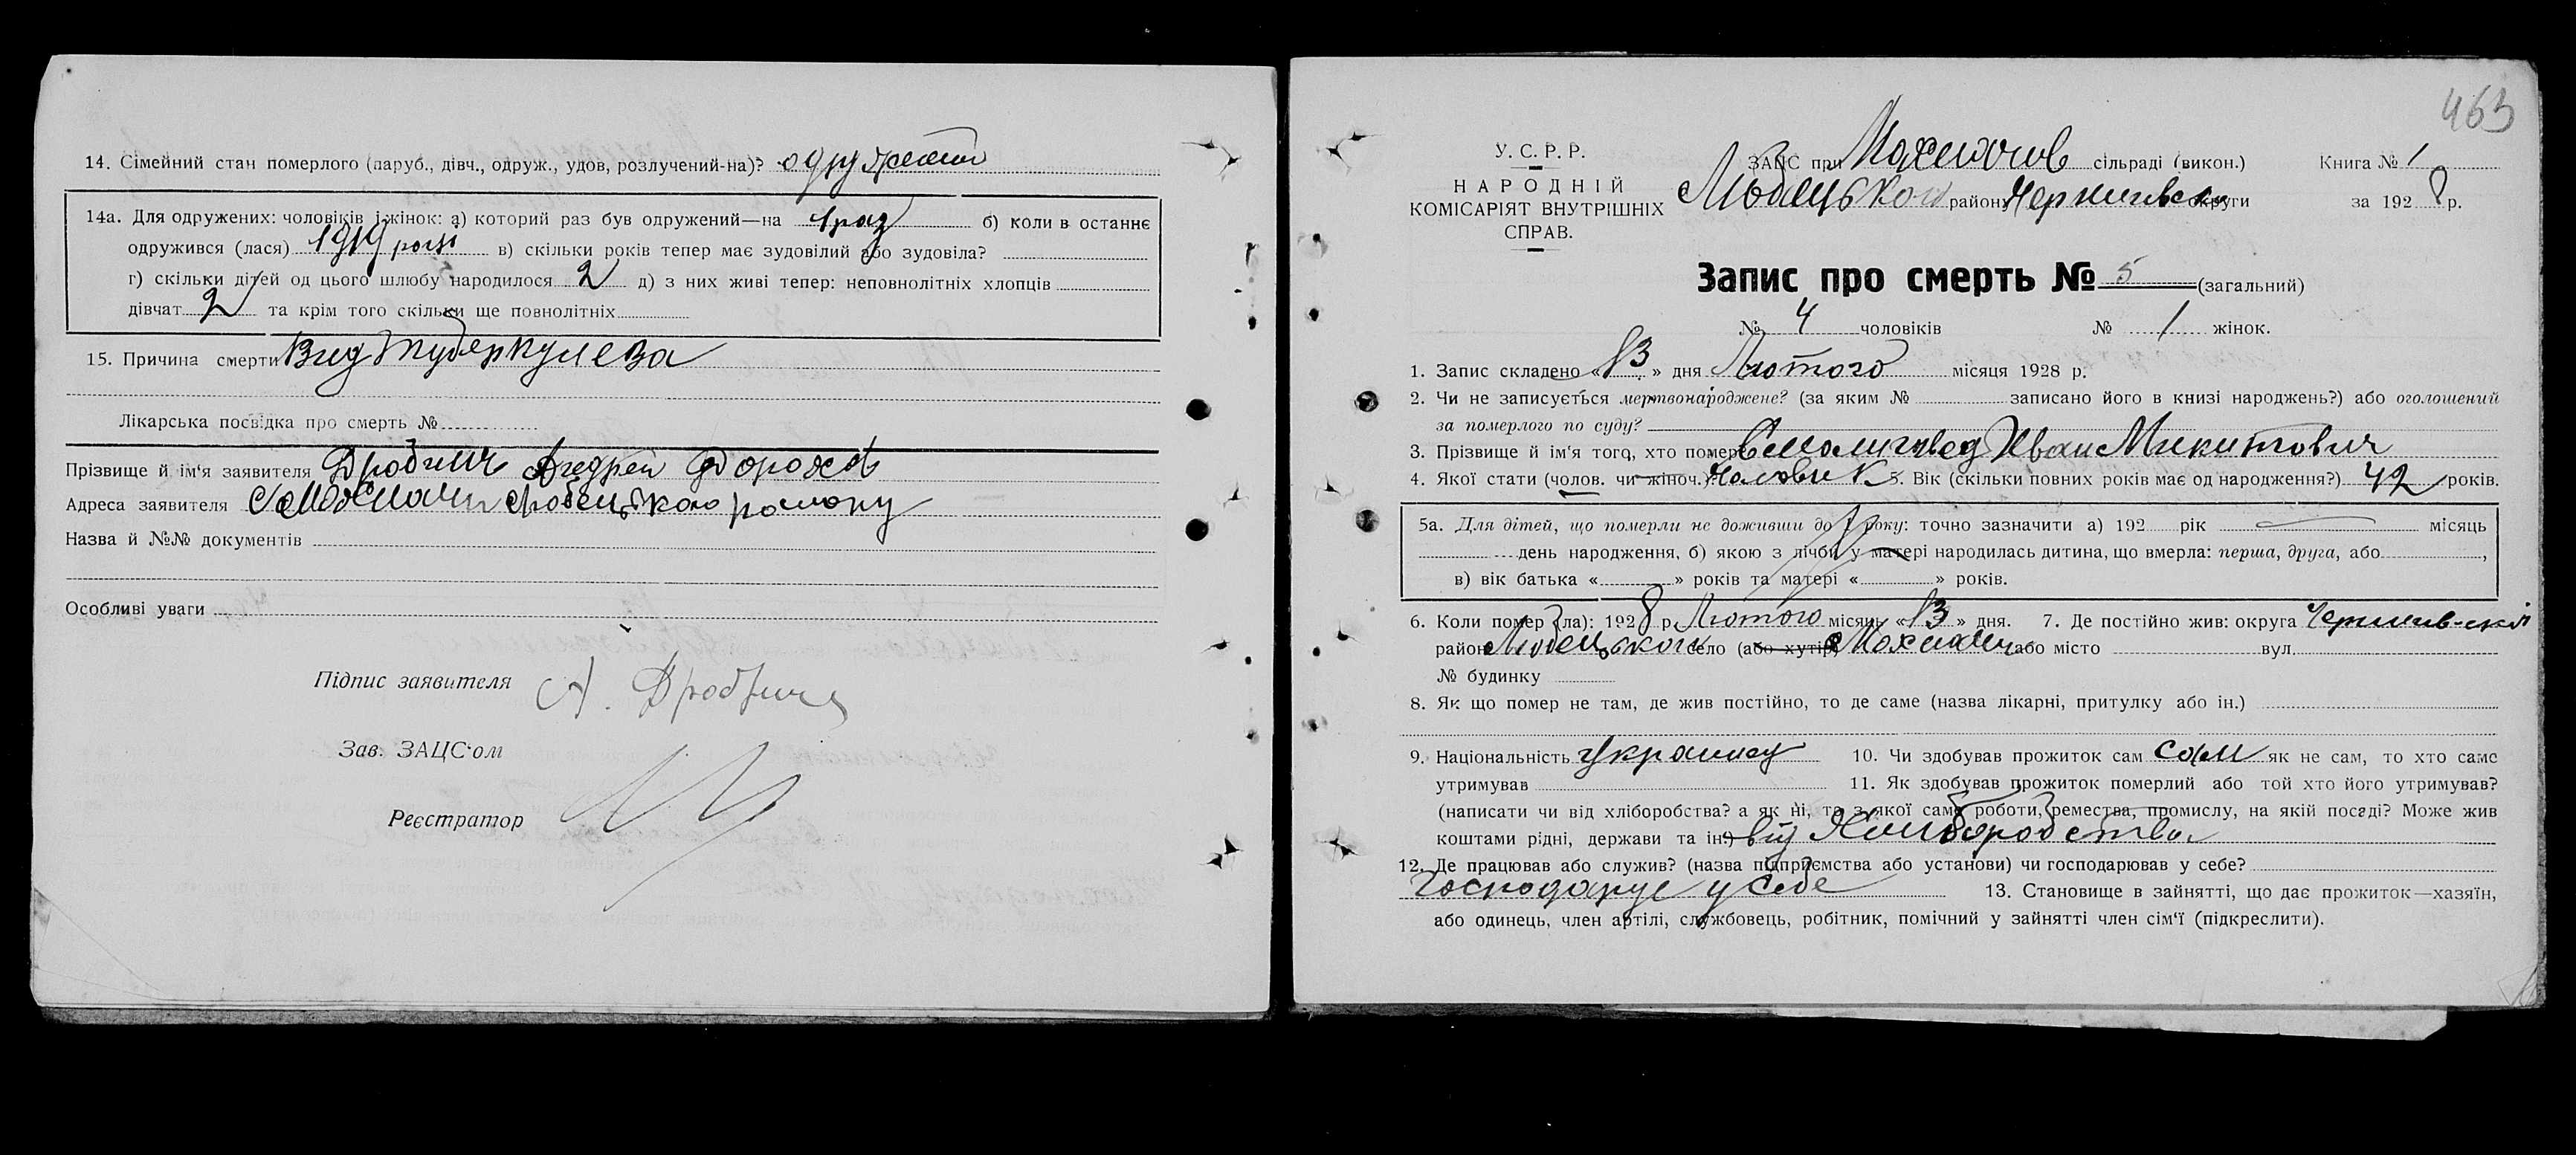 14. Сімейний стан померлого (паруб., дівч., одруж., удов, розлучений-на)? одружений
14а. Для одружених: чоловіків і жінок: а) которий раз був одружений—на 1 раз б) коли в останнє
одружився (лася) 1919 році в) скільки років тепер має зудовілий або зудовіла?
г) скільки дітей од цього шлюбу народилося 2 д) з них живі тепер: неповнолітніх хлопців
дівчат 2 та крім того скільки ще повнолітніх
15. Причина смерти Вид туберкулеза
Лікарська посвідка про смерть №
Прізвище й ім'я заявителя Дробнич Андрей
Адреса заявителя Любецького району
Назва й №№ документів
Особливі уваги
Підпис заявителя А.
Зав. ЗАЦС'ом
Реєстратор
463
У. С. Р. Р.
НАРОДНІЙ
КОМІСАРІЯТ ВНУТРІШНІХ
СПРАВ.
ЗАЦС при сільраді (викон.) Книга № 1
Любецького району округи за 1928 р.
Запис про смерть № 5 (загальний)
№ 4 чоловіків № 1 жінок.
1. Запис складено «13» дня Лютого місяця 1928 р.
2. Чи не записується мертвонароджене? (за яким № записано його в книзі народжень?) або оголошений
за померлого по суду?
3. Прізвище й ім'я того, хто помер Иван Микитович
4. Якої стати (чолов. чи жіноч.) Чоловик 5. Вік (скільки повних років має од народження?) 42 років.
5а. Для дітей, що померли не доживши до 1 року: точно зазначити а) 192 рік місяць
день народження, б) якою з лічби у матері народилась дитина, що вмерла: перша, друга, або ,
в) вік батька « » років та матері « » років.
6. Коли помер (ла): 1928 р. Лютого місяць «13» дня. 7. Де постійно жив: округа
район Любецького село (або хутір) або місто вул.
№ будинку
8. Як що помер не там, де жив постійно, то де саме (назва лікарні, притулку або ін.)
9. Національність 10. Чи здобував прожиток сам сам як не сам, то хто саме
утримував 11. Як здобував прожиток померлий або той хто його утримував?
(написати чи від хліборобства? а як ні, то з якої саме роботи, ремества, промислу, на якій посаді? Може жив
коштами рідні, держави та ін.) від Хлиборобства
12. Де працював або служив? (назва підприємства або установи) чи господарював у себе?
господарує у себе 13. Становище в зайнятті, що дає прожиток—хазяїн,
або одинець, член артілі, службовець, робітник, помічний у зайнятті член сім'ї (підкреслити).